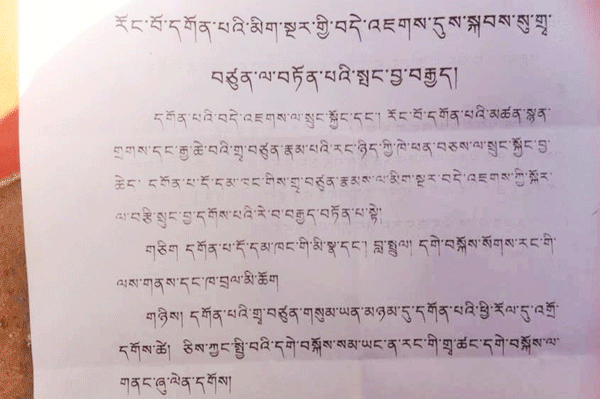 རོང་བོ་དགོན་པའི་མིག་སྔར་གྱི་བདེ་འཇགས་དུས་སྐབས་སུ་གྲྭ་
བཙུན་ལ་བཏོན་པའི་སྤང་བྱ་བརྒྱད།
དགོན་པའི་བདེ་འཇགས་ལ་སྲུང་སྐྱོང་དང་། རོང་བོ་དགོན་པའི་མཚན་སྙན་
གྲགས་དང་རྒྱ་ཆེ་བའི་གྲྭ་བཙུན་རྣམ་པའི་རང་ཉིད་ཀྱི་ཁེ་ཕན་བཅས་ལ་སྲུང་སྐྱོང་བྱ་
ཆེད། དགོན་པ་དོ་དམ་ཁང་གིས་གྲྭ་བཙུན་རྣམས་ལ་མིག་སྔར་བདེ་འཇགས་ཀྱི་སྐོར་
ལ་བརྩི་སྲུང་བྱ་དགོས་པའི་རེ་བ་བརྒྱད་བཏོན་པ་སྟེ།
གཅིག དགོན་པ་དོ་དམ་ཁང་གི་མི་སྣ་དང་། བླ་སྤྲུལ། དགེ་བསྐོས་སོགས་རང་གི་
ལས་གནས་དང་ཁ་བྲལ་མི་ཆོག
གཉིས། དགོན་པའི་གྲྭ་བཙུན་གསུམ་ཡན་མཉམ་དུ་དགོན་པའི་ཕྱི་རོལ་དུ་འགྲོ་
དགོས་ཚེ། ཅིས་ཀྱང་སྤྱི་བའི་དགེ་བསྐོས་སམ་ཡང་ན་རང་གི་གྲྭ་ཚང་དགེ་བསྐོས་ལ་
གནང་ཞུ་ལེན་དགོས།